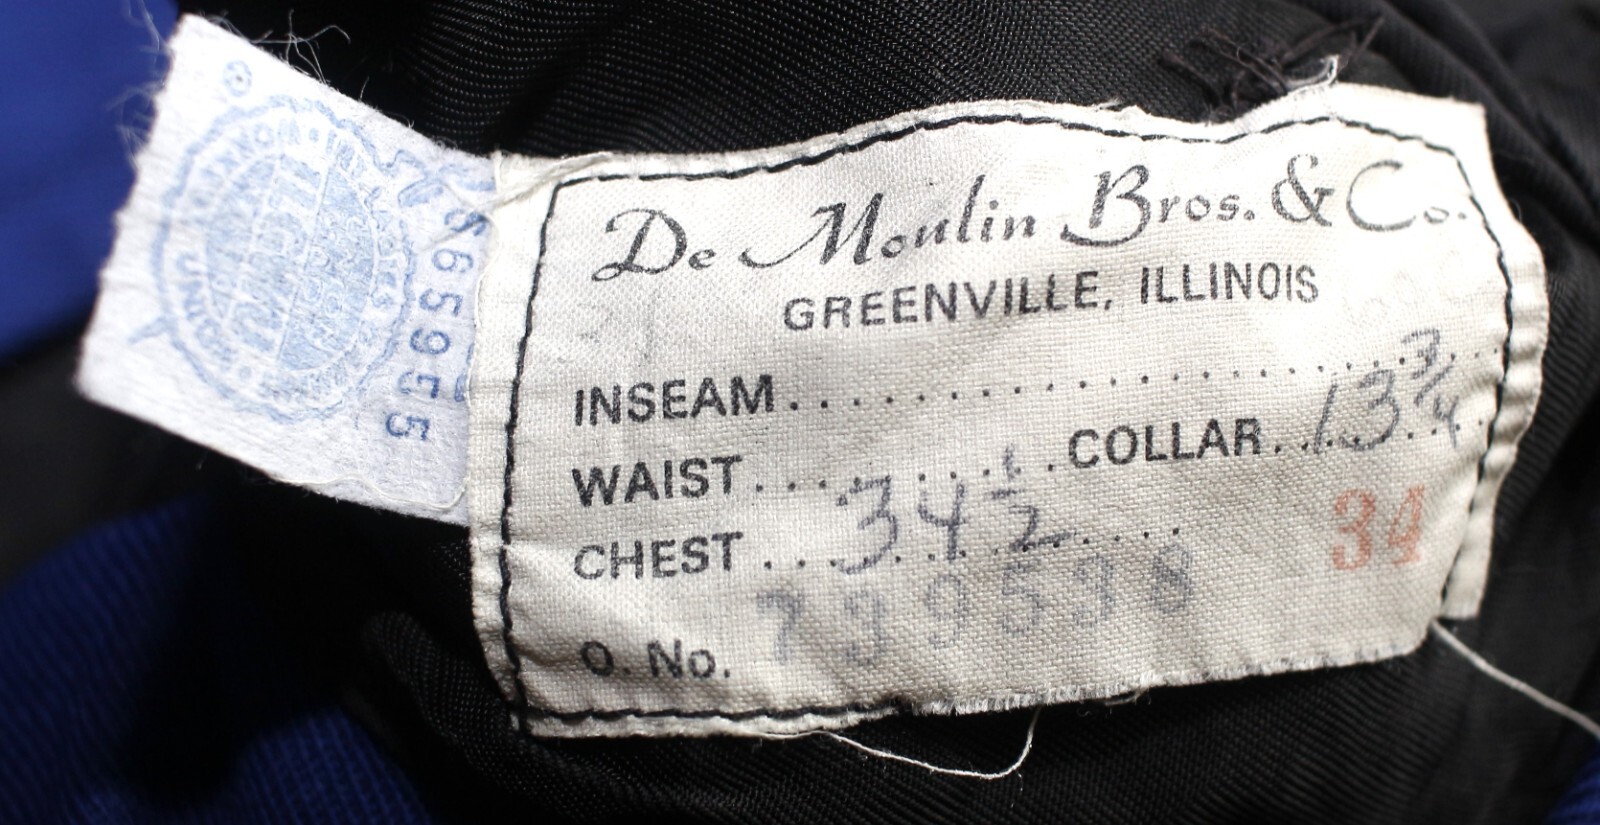 De Moulin Bros. & Co.
GREENVILLE, ILLINOIS
INSEAM....................
WAIST........COLLAR...13 3/4
CHEST...34 1/2.... 34
O. No. 739538
865955